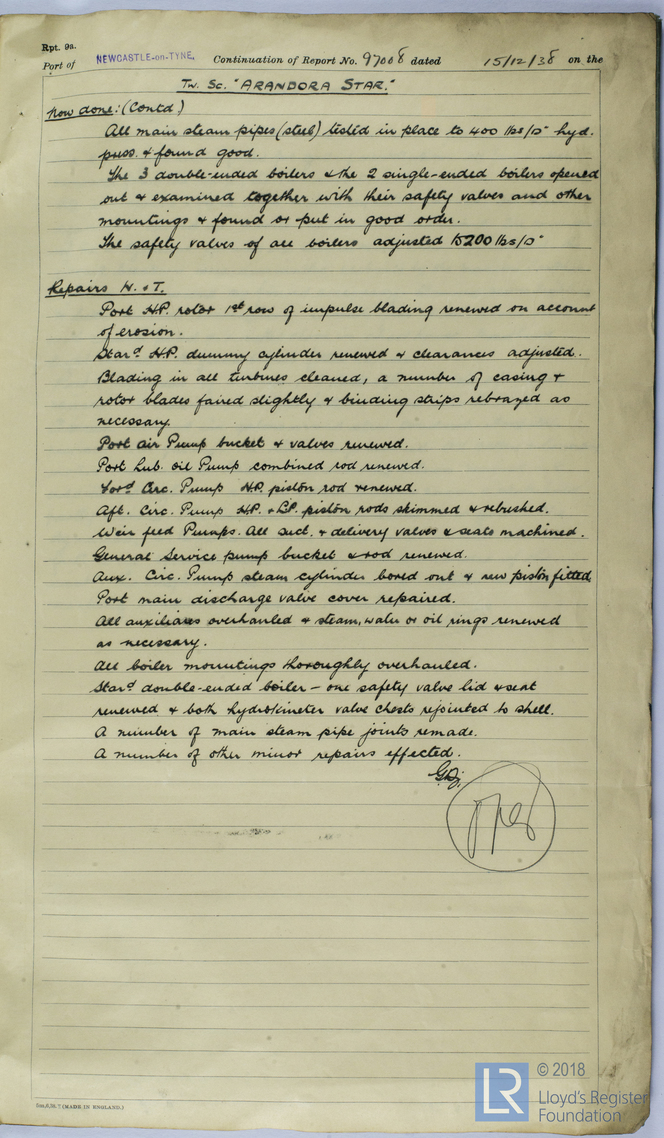 Rpt. 9a.
Port of NEWCASTLE-on-TYNE. Continuation of Report No. 97008 dated 15/12/38 on the
Tw. Sc. "ARANDORA STAR."
Now done: (Contd.)
All main steam pipes (steel) tested in place to 400 lbs/□" hyd.
press. & found good.
The 3 double-ended boilers & the 2 single-ended boilers opened
out & examined together with their safety valves and other
mountings & found or put in good order.
The safety valves of all boilers adjusted to 200 lbs/□"
Repairs W. & T.
Port H.P. rotor 1st row of impulse blading renewed on account
of erosion.
Starᵈ H.P. dummy cylinder renewed & clearances adjusted.
Blading in all turbines cleaned, a number of casing &
rotor blades faired slightly & binding strips rebrazed as
necessary.
Port air Pump bucket & valves renewed.
Port Lub. oil Pump combined rod renewed.
Forᵈ Circ. Pump H.P. piston rod renewed.
Aft. Circ. Pump H.P. & L.P. piston rods skimmed & rebushed.
Weir feed Pumps. All suct. & delivery valves & seats machined.
General Service pump bucket & rod renewed.
Aux. Circ. Pump steam cylinder bored out & new piston fitted
Port main discharge valve cover repaired.
All auxiliaries overhauled & steam, water or oil rings renewed
as necessary.
All boiler mountings thoroughly overhauled.
Starᵈ double-ended boiler - one safety valve lid & seat
renewed & both hydrokineter valve chests rejointed to shell.
A number of main steam pipe joints remade.
A number of other minor repairs effected.
(MADE IN ENGLAND.)
LR
© 2018
Lloyd's Register
Foundation